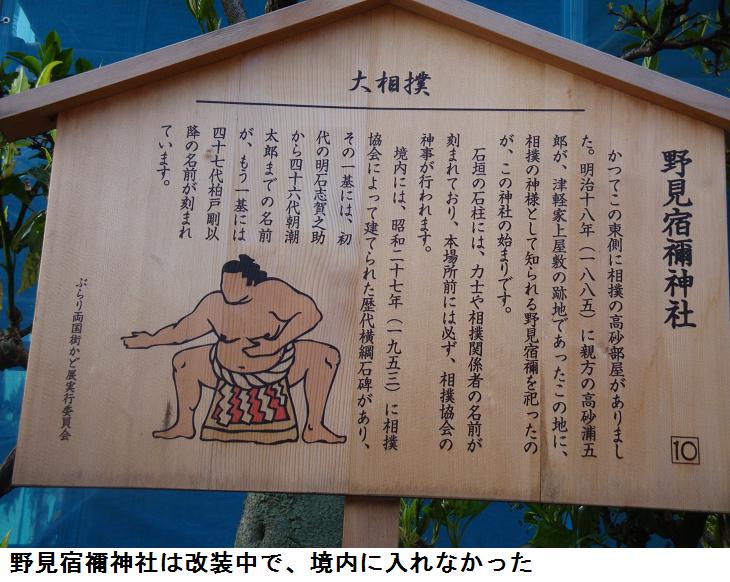 大相撲
野見宿禰神社
かつてこの東側に相撲の高砂部屋がありまし
た。明治十八年（一八八五）に親方の高砂浦五
郎が、津軽家上屋敷の跡地であったこの地に、
相撲の神様として知られる野見宿禰を祀ったの
が、この神社の始まりです。
石垣の石柱には、力士や相撲関係者の名前が
刻まれており、本場所前には必ず、相撲協会の
神事が行われます。
境内には、昭和二十七年（一九五三）に相撲
協会によって建てられた歴代横綱石碑があり、
その一基には、初
代の明石志賀之助
から四十六代朝潮
太郎までの名前
が、もう一基には
四十七代柏戸剛以
降の名前が刻まれ
ています。
10
ぶらり両国街かど展実行委員会
野見宿禰神社は改装中で、境内に入れなかった